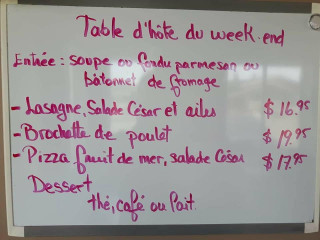 Table d'hôte du week-end
Entrée : soupe ou fondu parmesan ou
bâtonnet de fromage
- Lasagne, Salade César et ailes $ 16.95
- Brochette de poulet $ 19.95
- Pizza fruit de mer, salade César $ 17.95
Dessert
thé, café ou lait